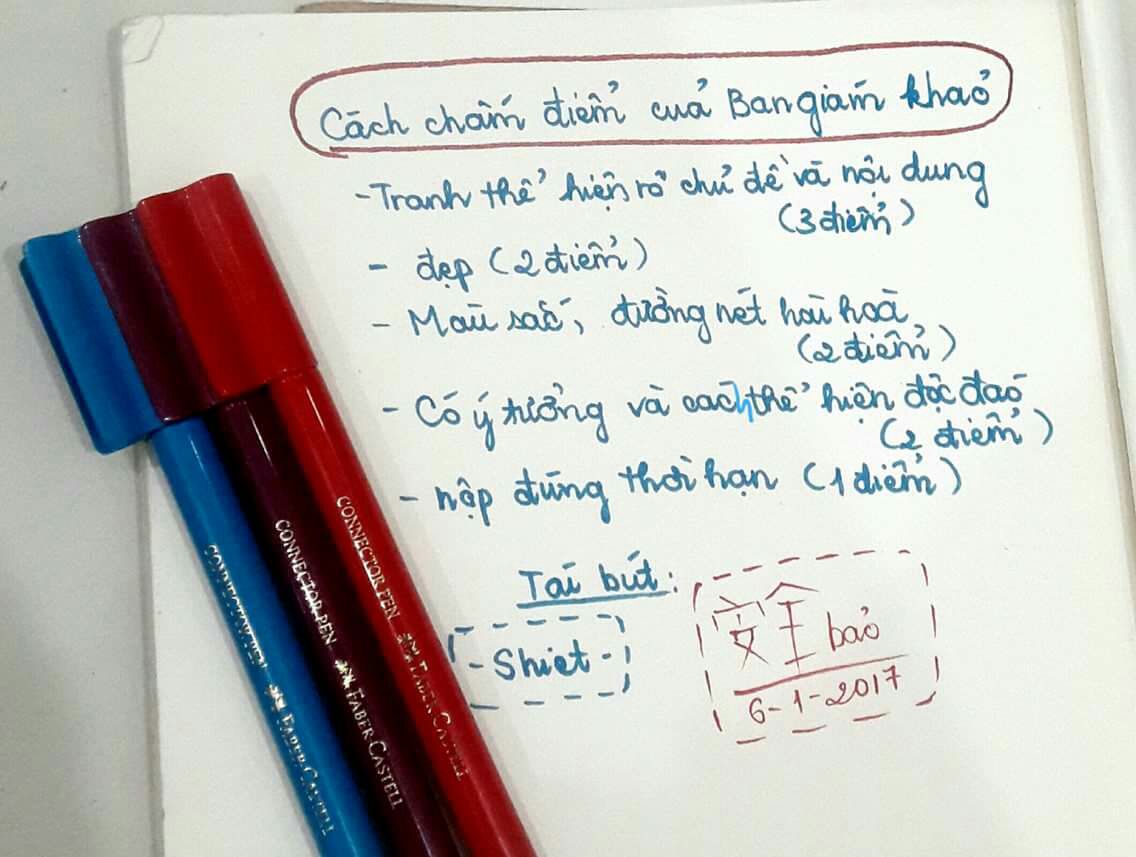 Cách chấm điểm của Ban giám khảo
- Tranh thể hiện rõ chủ đề và nội dung
(3 điểm)
- đẹp (2 điểm)
- Màu sắc, đường nét hài hoà
(2 điểm)
- Có ý tưởng và cách thể hiện độc đáo
(2 điểm)
- nộp đúng thời hạn (1 điểm)
Tái bút:
- Shiet -
bảo
6-1-2017
CONNECTOR PEN FABER-CASTELL
CONNECTOR PEN FABER-CASTELL
CONNECTOR PEN FABER-CASTELL